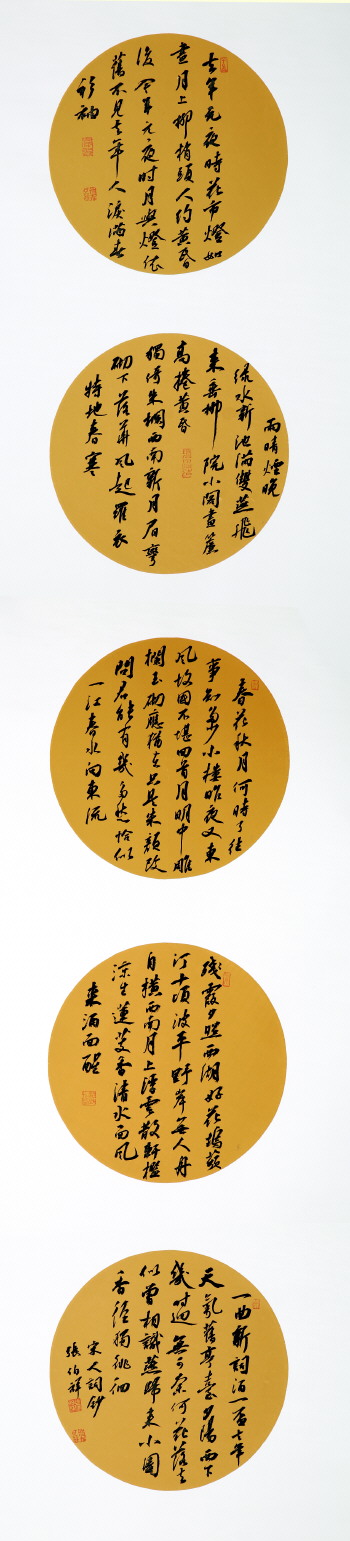 去年元夜時花市燈如
晝月上柳梢頭人約黄昏
後今年元夜时月與燈依
舊不見去年人淚滿春
衫袖
雨晴煙晚
绿水新池滿雙燕飛
來垂柳院小閣畫簾
高捲黄昏
獨倚朱欄西南新月眉彎
砌下落花風起羅衣
特地春寒
春花秋月何時了往
事知多少小樓昨夜又東
風故國不堪回首月明中雕
欄玉砌應猶在只是朱顏改
問君能有幾多愁恰似
一江春水向東流
殘霞夕照西湖好花塢蘋
汀十頃波平野岸無人舟
自橫西南月上浮雲散軒檻
涼生蓮芰香清水面風
來酒面醒
一曲新詞酒一盃去年
天氣舊亭臺夕陽西下
幾时迴無可奈何花落去
似曾相識燕歸来小園
香徑獨徘徊
宋人詞鈔
張伯祥